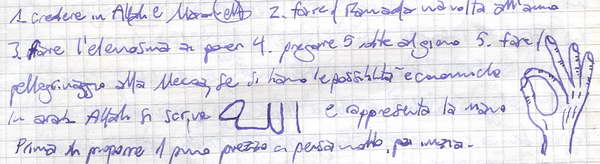 1. credere in Allah e Maometto 2. fare il Ramadan una volta all'anno
3. fare l'elemosina ai poveri 4. pregare 5 volte al giorno 5. fare il
pellegrinaggio alla Mecca, se si hanno le possibilità economiche
In arabo Allah si scrive الله e rappresenta la mano
Prima di proporre il primo prezzo ci pensa molto, per